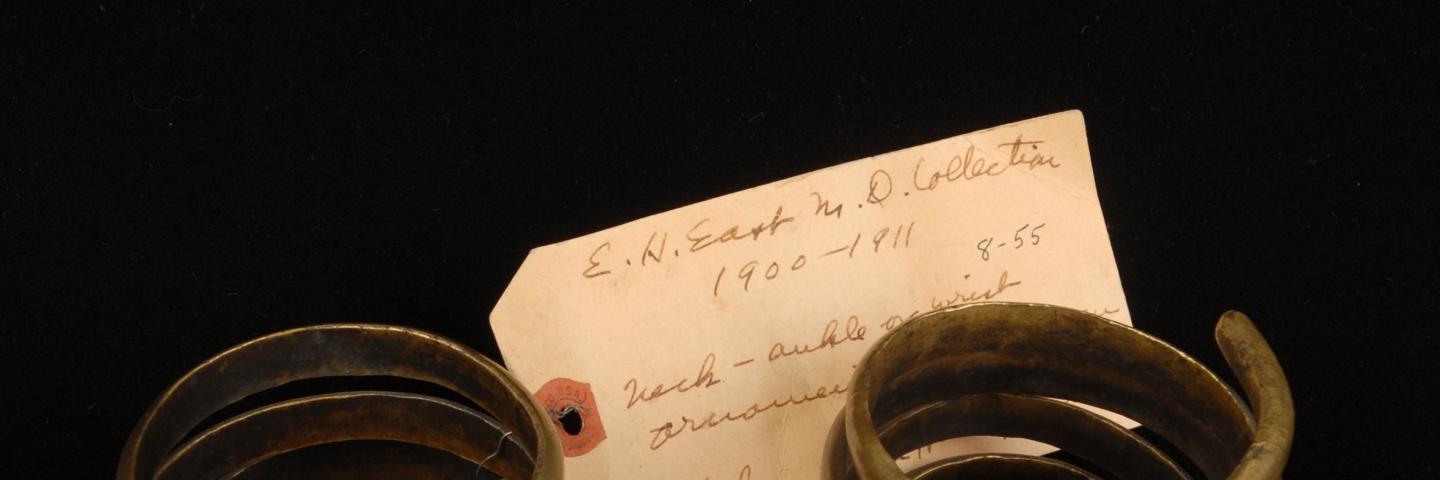 E. H. East M. D. Collection
1900-1911
8-55
Neck - ankle or wrist
USA